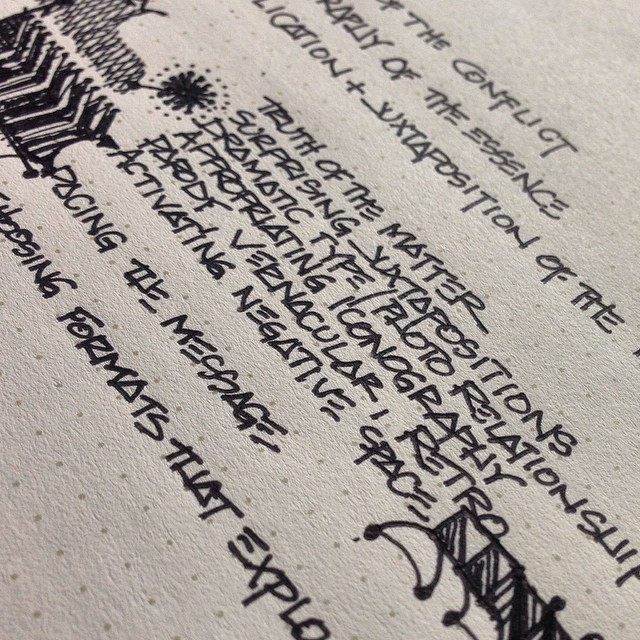 OF THE CONFLICT
OF THE ESSENCE
+ JUXTAPOSITION OF THE
TRUTH OF THE MATTER
SURPRISING JUXTAPOSITIONS
DRAMATIC TYPE/PHOTO RELATIONSHIP
APPROPRIATING ICONOGRAPHY
PARODY VERNACULAR + RETRO
ACTIVATING NEGATIVE SPACE
PACING THE MESSAGE
FORMATS THAT EXPLO